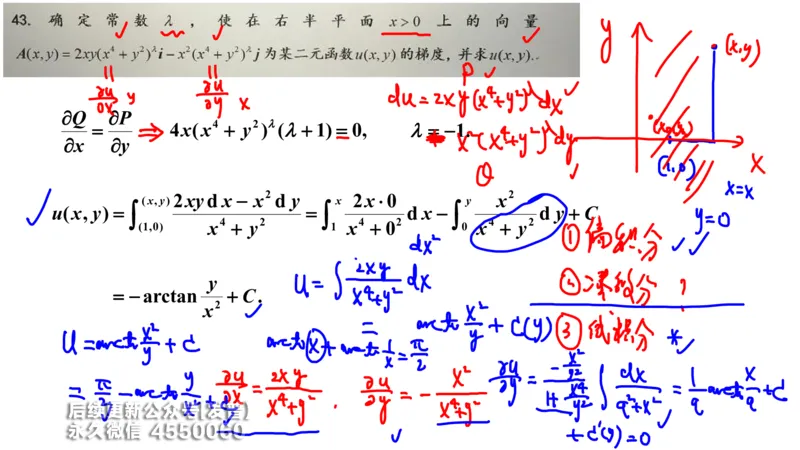 43. 确定常数λ，使在右半平面 x>0 上的向量
A(x,y)=2xy(x⁴+y²)^λ i−x²(x⁴+y²)^λ j 为某二元函数u(x,y)的梯度，并求u(x,y).
‖ ∂u/∂x y
‖ ∂u/∂y x
P
du=2xy(x⁴+y²)^λ dx
− x²(x⁴+y²)^λ dy
Q
∂Q/∂x = ∂P/∂y ⇒ 4x(x⁴+y²)^λ(λ+1)=0, λ=−1.
y
(x,y)
(1,0)
x
x=x
y=0
u(x,y)=∫_(1,0)^(x,y) (2xy d x − x² d y)/(x⁴+y²) = ∫_1^x (2x·0)/(x⁴+0²) d x − ∫_0^y x²/(x⁴+y²) d y + C
= −arctan y/x² + C.
① 偏积分
② 凑微分
③ 线积分 *
dx²
u=∫ 2xy/(x⁴+y²) dx
= arctan x²/y + C(y)
u=arctan x²/y + C
arctan x + arctan 1/x = π/2
= π/2 − arctan y/x² + C
∂u/∂x = 2xy/(x⁴+y²) . ∂u/∂y = − x²/(x⁴+y²)
∂u/∂y = (−x²/y²)/(1+x⁴/y²)
+ C'(y)=0
∫ dx/(a²+x²) = 1/a arctan x/a + C
后续更新公众号(发信)
永久微信 4550060